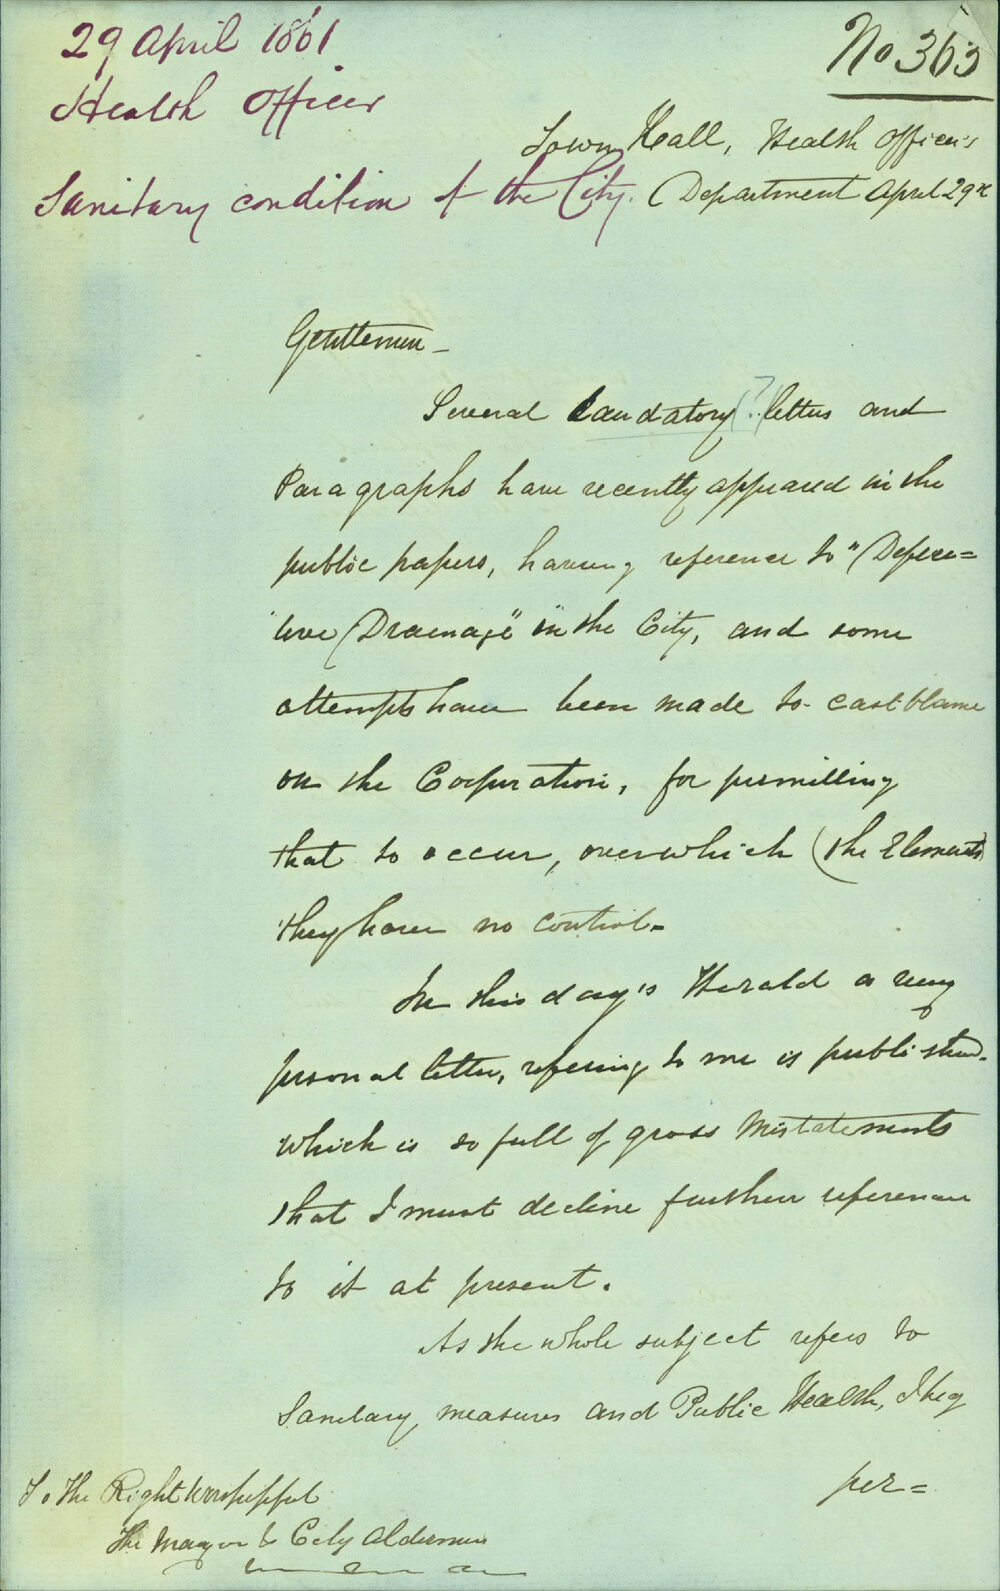 29 April 1861
No 363
Health Officer
Town Hall, Health Officer's
Sanitary condition of the City.
Department April 29th
Gentlemen -
Several Laudatory (?) letters and
Paragraphs have recently appeared in the
public papers, having reference to "Defec=
tive Drainage" in the City, and some
attempts have been made to cast blame
on the Corporation, for permitting
that to occur, over which (the Elements)
they have no control -
In this day's Herald a very
personal letter, refering to me is published -
which is so full of gross Mistatements
that I must decline further reference
to it at present.
As the whole subject refers to
Sanitary, measures and Public Health, I beg
per=
To The Right Worshipful
The Mayor & City Aldermen